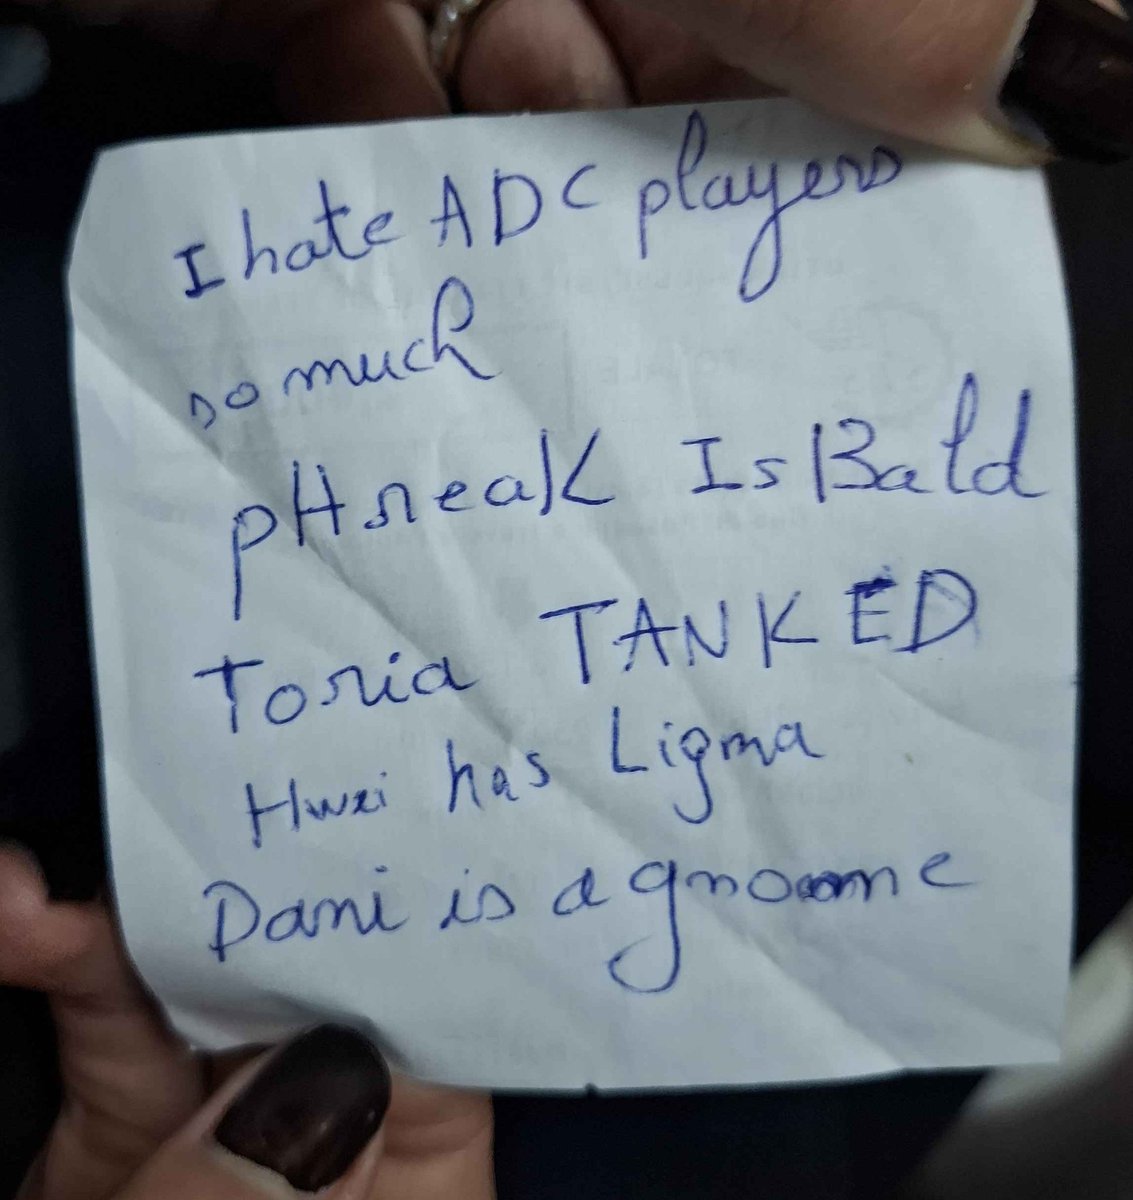 I hate ADC players
so much
pHreaK Is Bald
Toria TANKED
Hwei has Ligma
Dani is a gnome